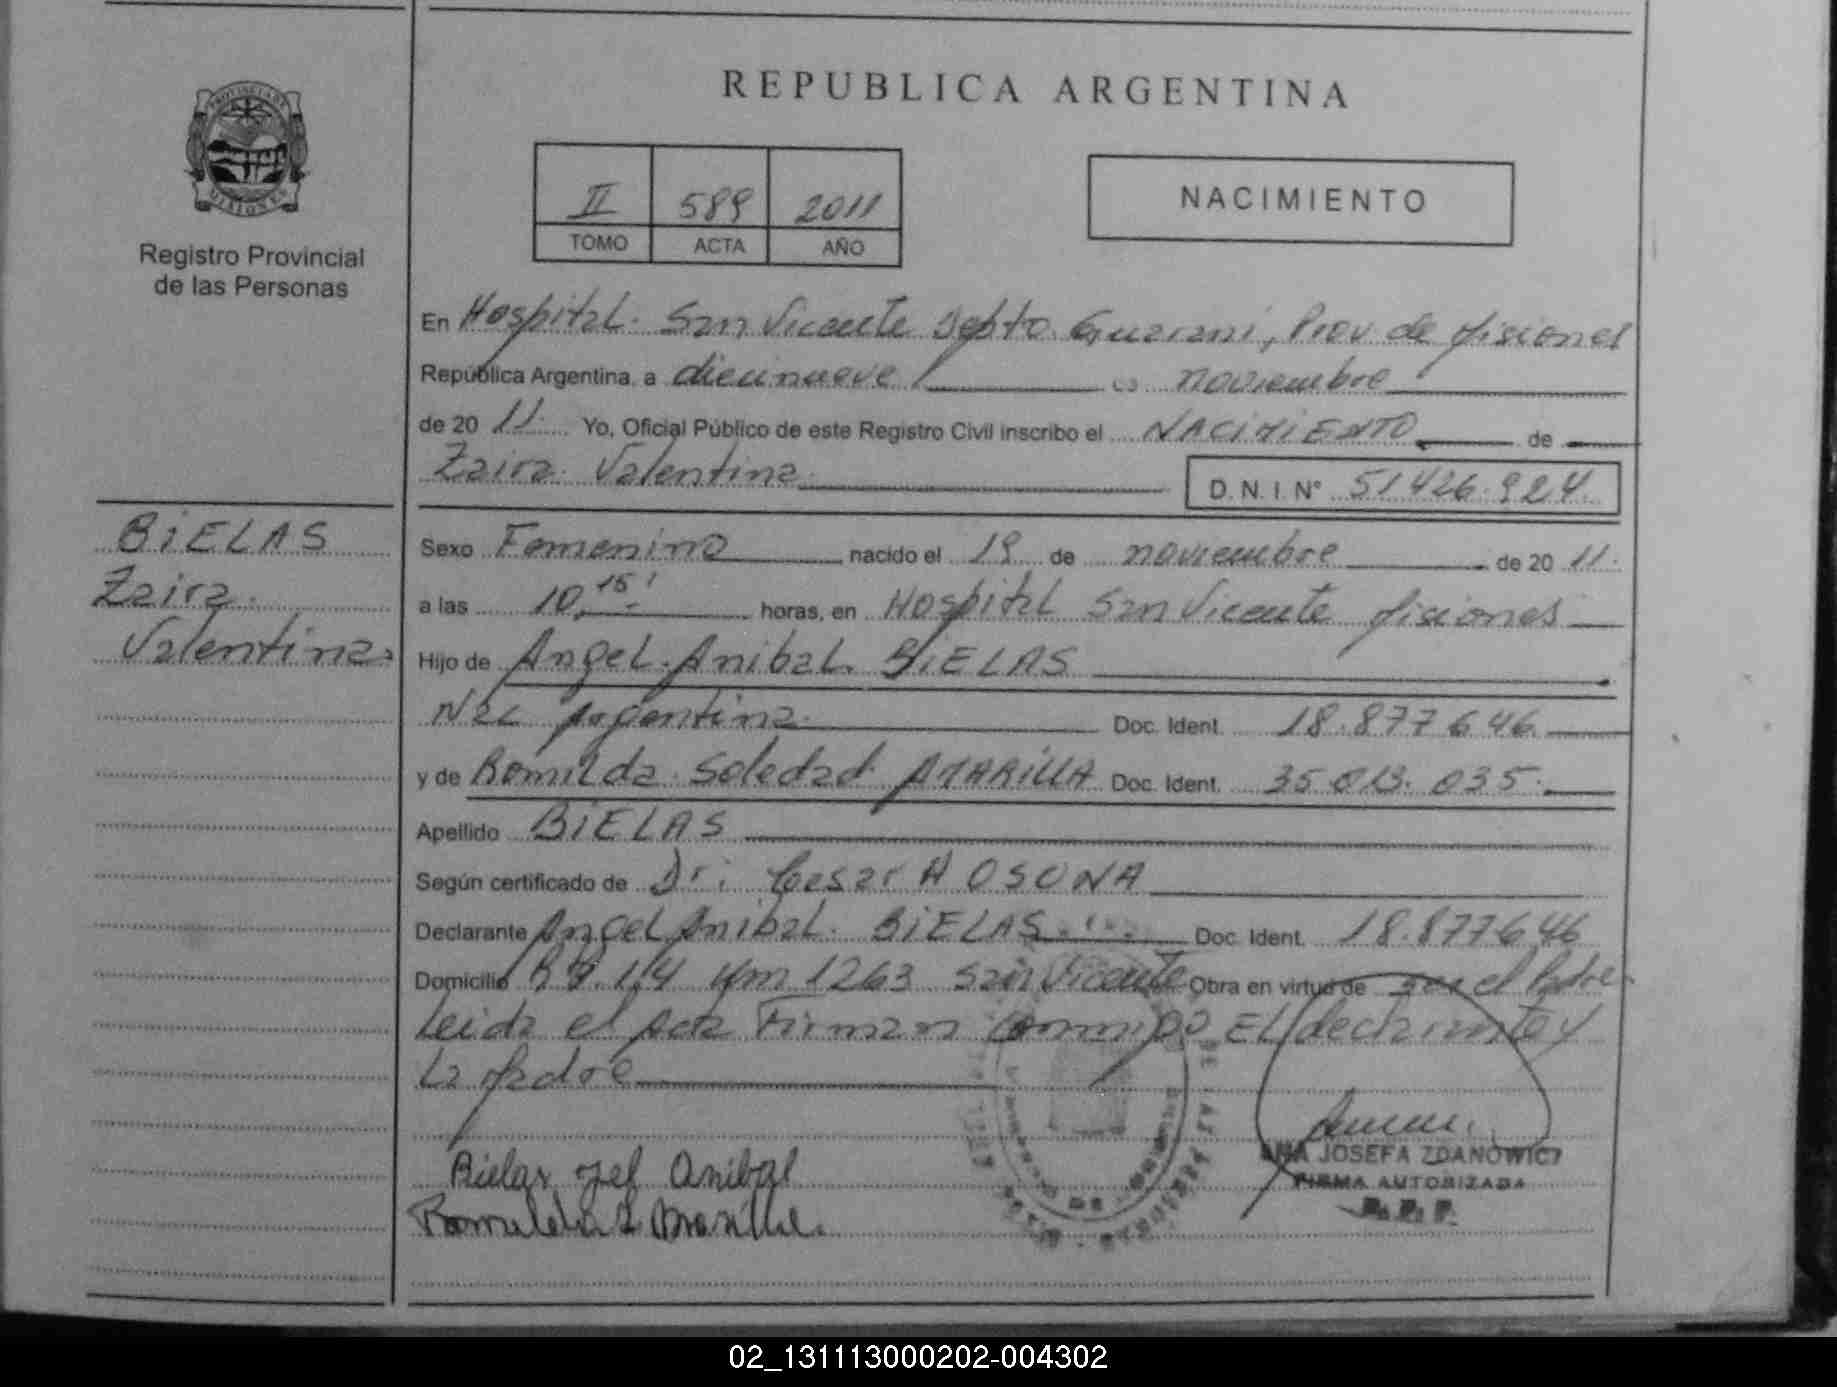 REPUBLICA ARGENTINA
PROVINCIA DE
MISIONES
Registro Provincial
de las Personas
II 589 2011
TOMO ACTA AÑO
NACIMIENTO
En Hospital San Vicente Depto Guarani, Prov de Misiones
República Argentina, a diecinueve de noviembre
de 20 11 Yo, Oficial Público de este Registro Civil inscribo el NACIMIENTO de
Zaira Valentina
D. N. I. N° 51426.924
BiELAS
Zaira
Valentina
Sexo Femenino nacido el 19 de noviembre de 20 11
a las 10,15' horas, en Hospital San Vicente Misiones
Hijo de Angel Anibal BiELAS
Nac Argentina Doc. Ident. 18.877646
y de Romilda Soledad AMARiLLA Doc. Ident. 35.013.035
Apellido BiELAS
Según certificado de Dr: Cesar H OSUNA
Declarante Angel Anibal BiELAS Doc. Ident. 18.877646
Domicilio R.N.14 Km 1263 San Vicente Obra en virtud de ser el Padre
Leida el Acta Firman Conmigo EL declarante y
La Madre
Anibal
ANA JOSEFA ZDANOWICZ
FIRMA AUTORIZADA
R. P. P.
02_131113000202-004302